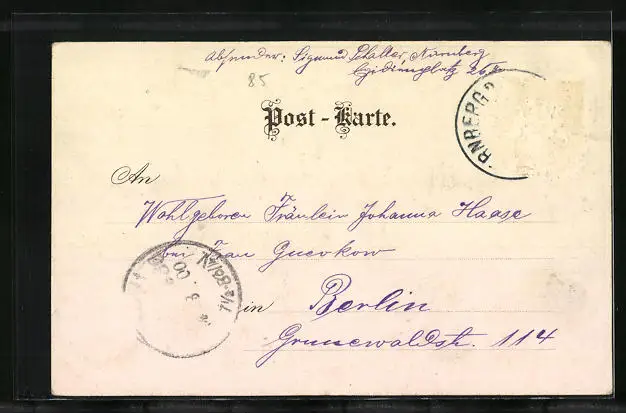 Absender: Sigmund Schaller, Nürnberg
Egidienplatz 26
85
Post-Karte.
RNBERG 2
An
Wohlgeboren Fräulein Johanna Haase
bei Frau Guevkow
in Berlin
Grunewaldstr. 114